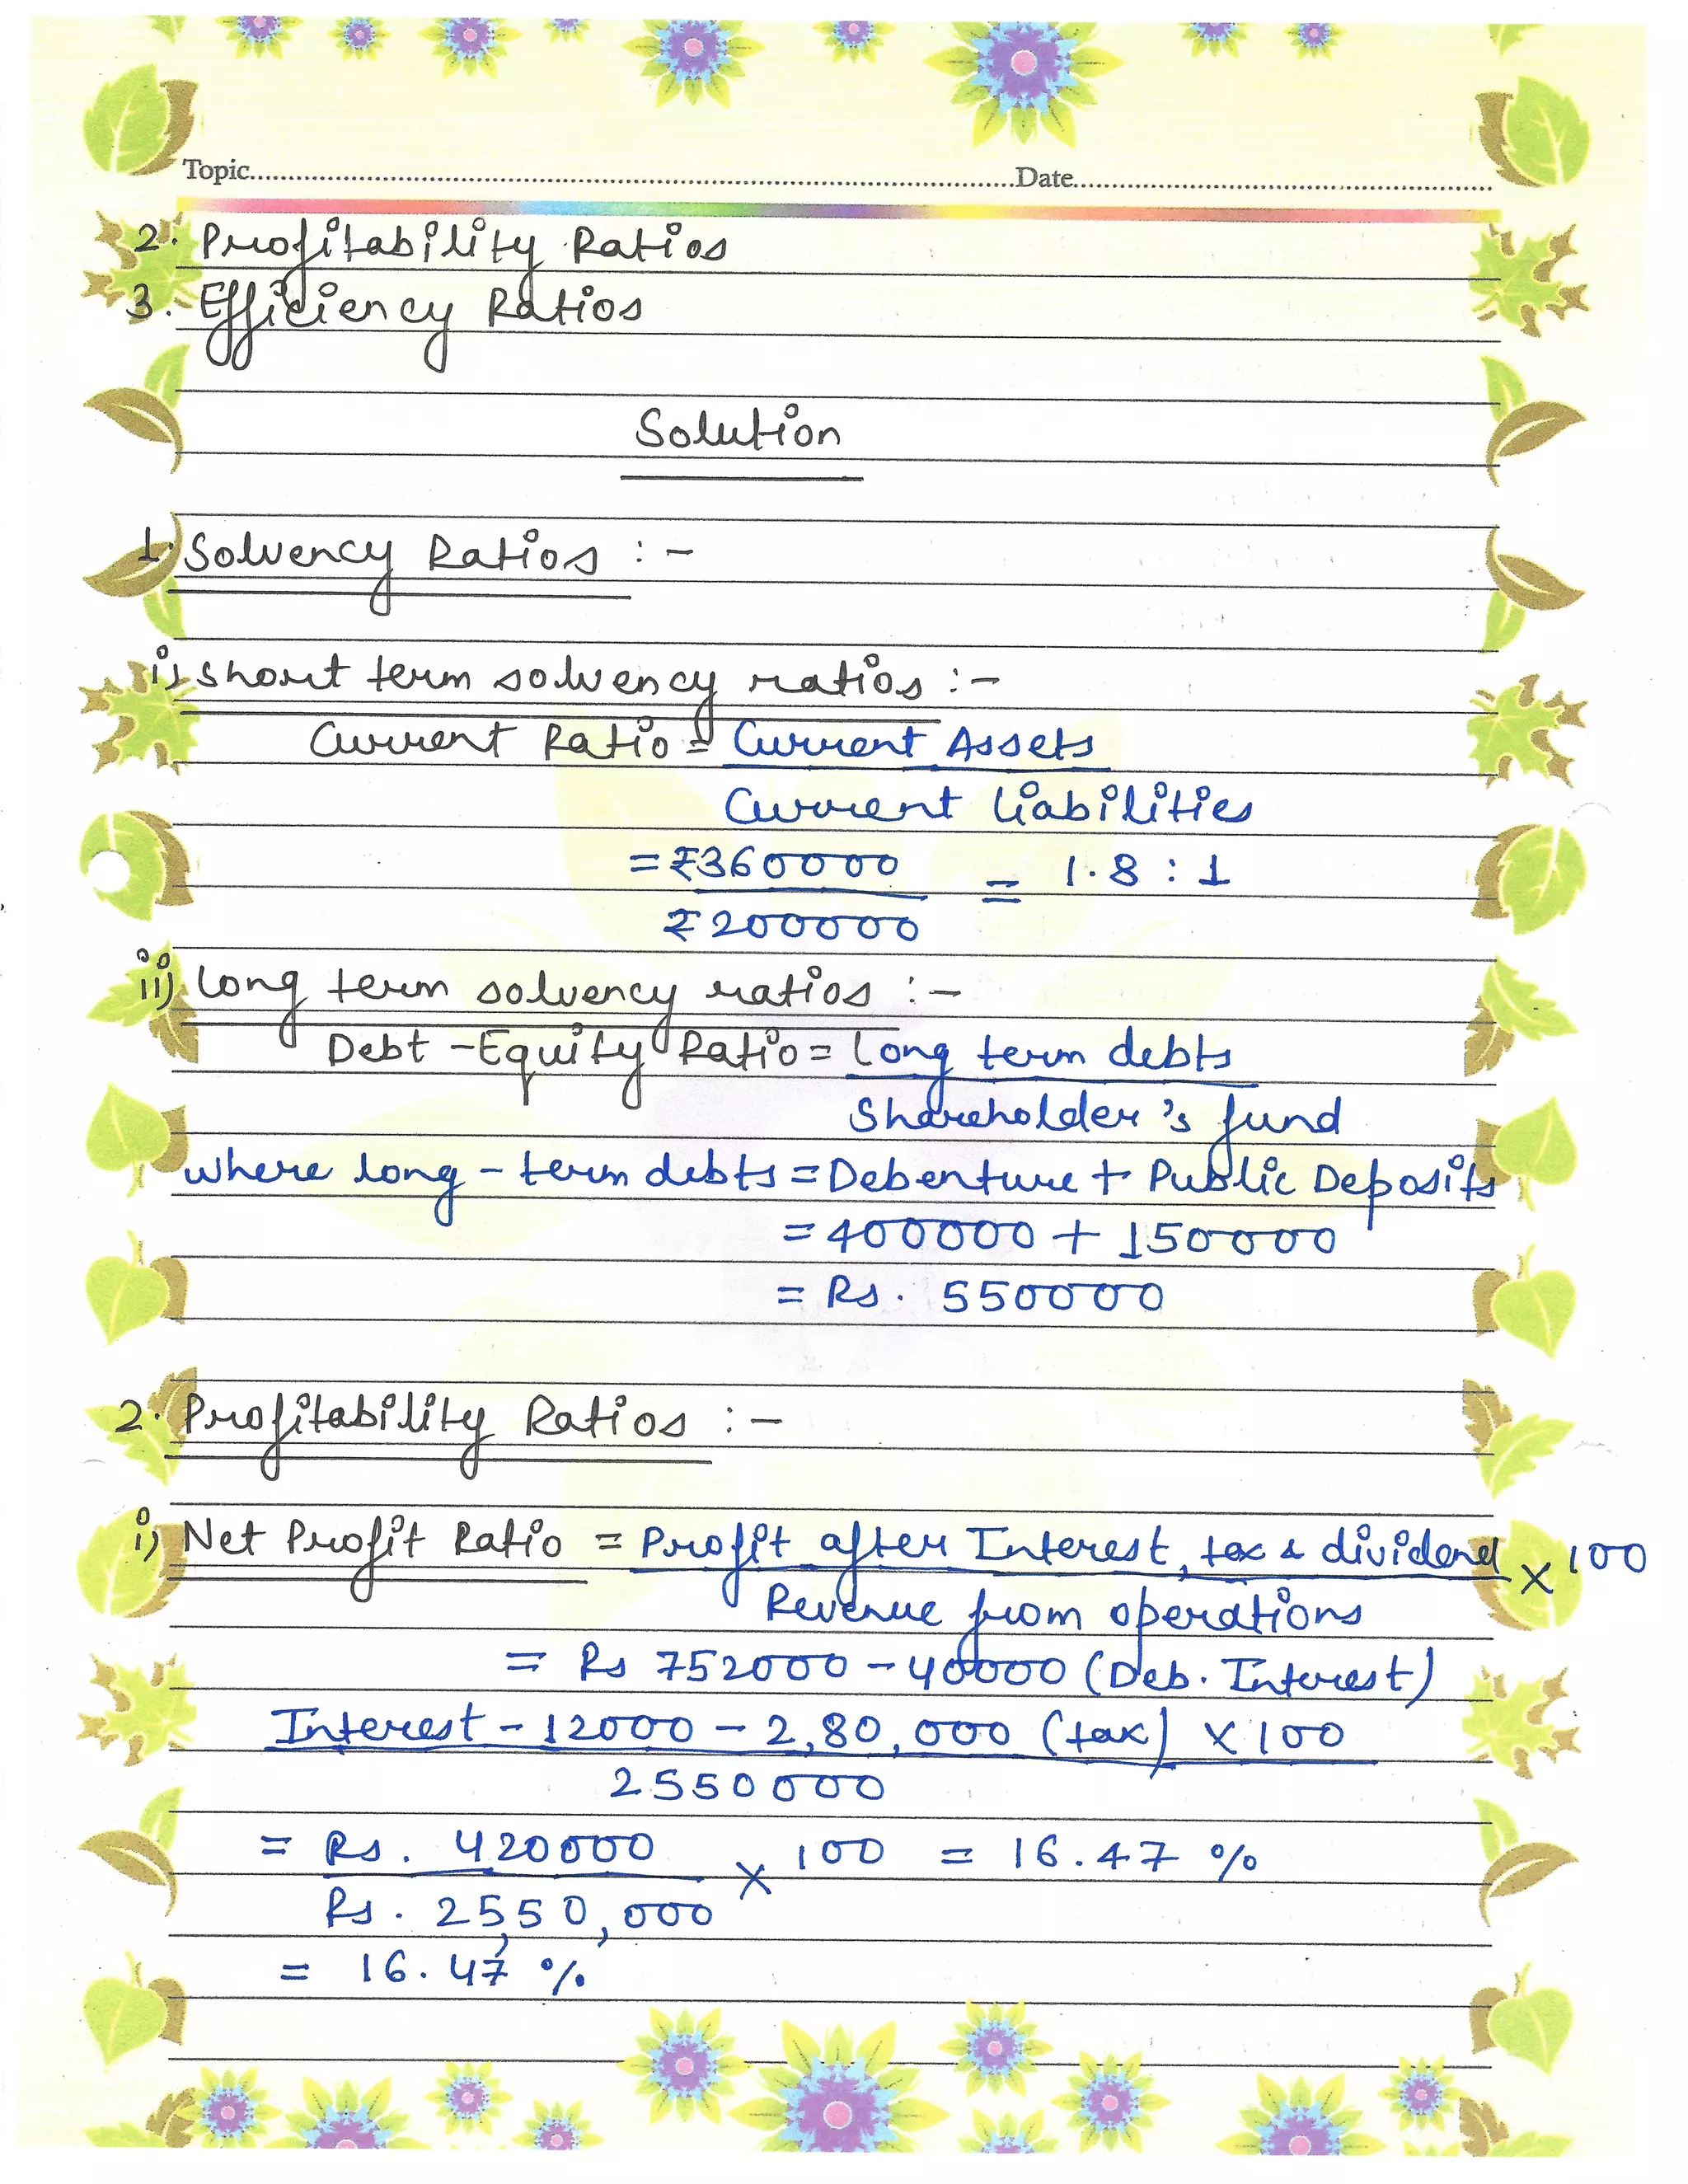 Topic Date
2. Profitability Ratios
3. Efficiency Ratios
Solution
1. Solvency Ratios :-
i) short term solvency ratios :-
Current Ratio = Current Assets
Current liabilities
= ₹360000 = 1.8 : 1
₹200000
ii) Long term solvency ratios :-
Debt - Equity Ratio = Long term debts
Shareholder's fund
where long - term debts = Debenture + Public Deposits
= 400000 + 150000
= Rs. 550000
2. Profitability Ratios :-
i) Net Profit Ratio = Profit after Interest, tax & dividend × 100
Revenue from operations
= Rs 752000 - 40000 (Deb. Interest)
Interest - 12000 - 2,80,000 (tax) × 100
2550000
= Rs. 420000 × 100 = 16.47 %
Rs. 25,50,000
= 16.47 %